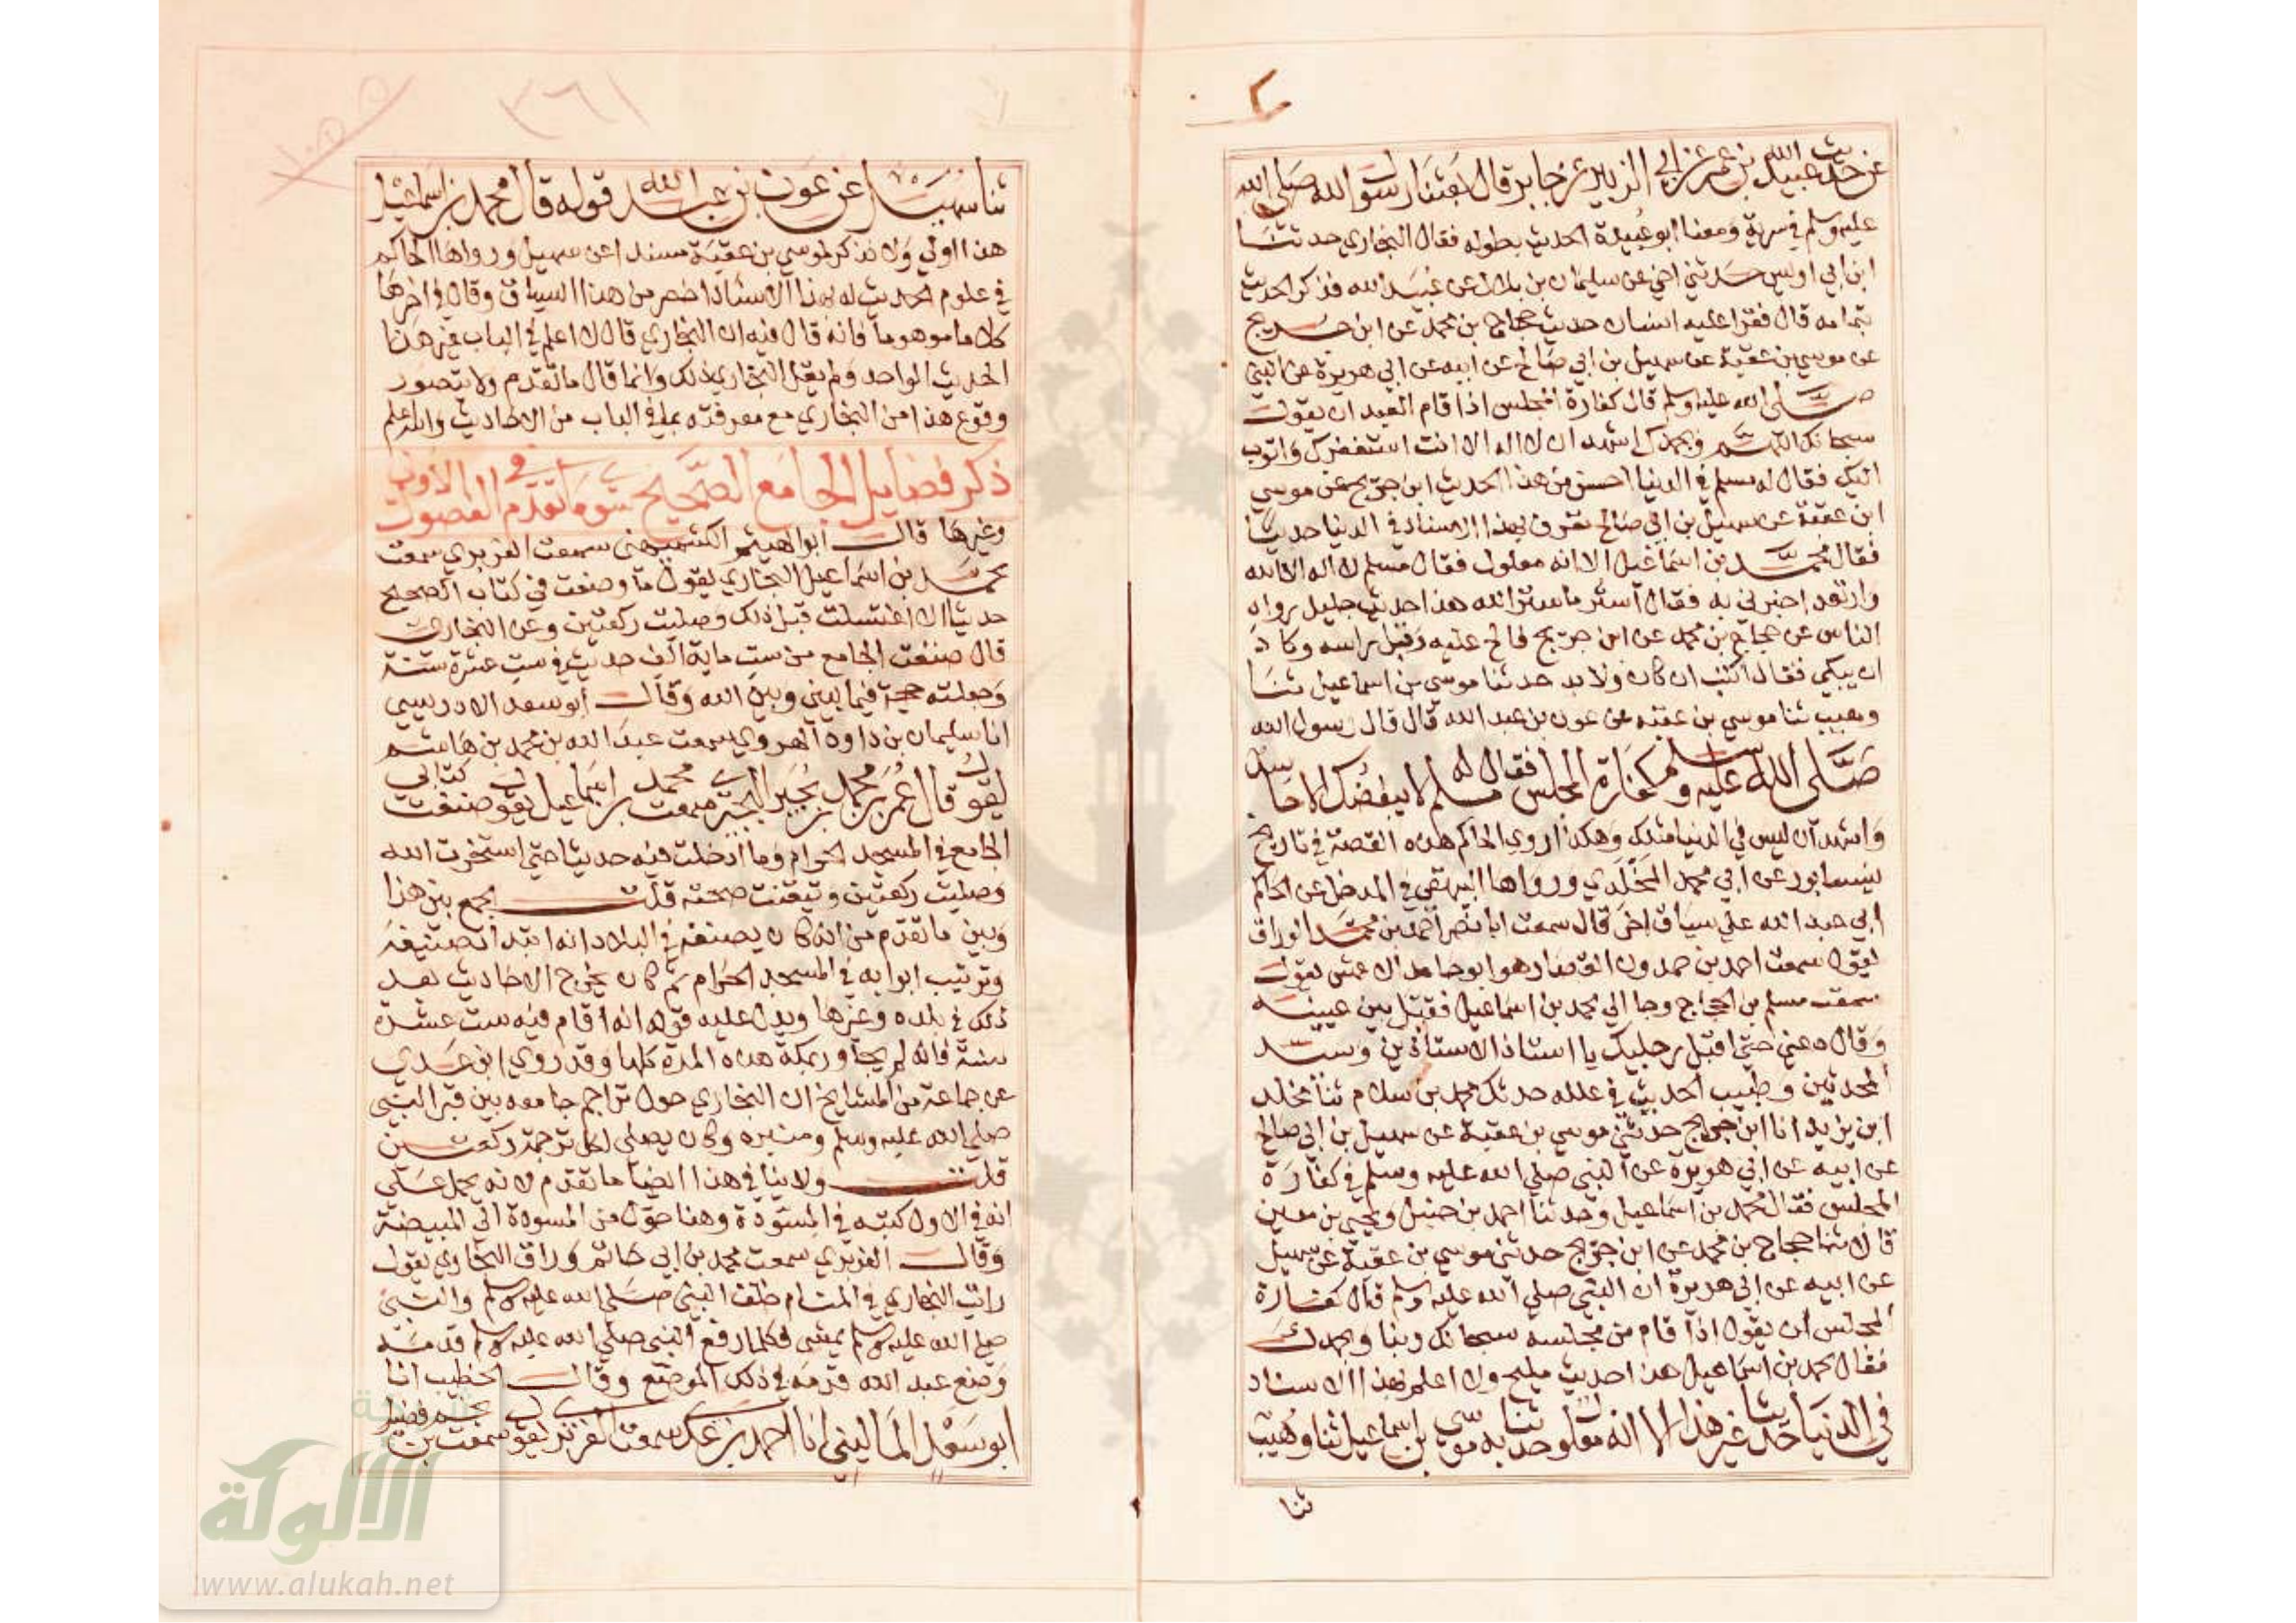 عن حديث عبيد الله بن عمر عن ابي الزبير عن جابر قال بعثنا رسول الله صلى الله
عليه وسلم في سرية ومعنا ابو عبيدة الحديث بطوله فقال البخاري حدثنا
ابن ابي اويس حدثني اخي عن سليمان بن بلال عن عبيد الله فذكر الحديث
بتمامه قال فقرا عليه انسان حديث حجاج بن محمد عن ابن جريج
عن موسي بن عقبة عن سهيل بن ابي صالح عن ابيه عن ابي هريرة عن النبي
صلى الله عليه وسلم قال كفارة المجلس اذا قام العبد ان يقول
سبحانك اللهم وبحمدك اشهد ان لا اله الا انت استغفرك واتوب
اليك فقال له مسلم في الدنيا احسن من هذا الحديث ابن جريج عن موسي
ابن عقبة عن سهيل بن ابي صالح تعرف بهذا الاسناد في الدنيا حديثا
فقال محمد بن اسماعيل الا انه معلول فقال مسلم لا اله الا الله
وارتعد اخبرني به فقال استر ما ستر الله هذا حديث جليل رواه
الناس عن حجاج بن محمد عن ابن جريج فالح عليه وقبل راسه وكاد
ان يبكي فقال اكتب ان كان ولا بد حدثنا موسي بن اسماعيل ثنا
وهيب ثنا موسي بن عقبة عن عون بن عبد الله قال قال رسول الله
صلى الله عليه وسلم كفارة المجلس فقال له مسلم لا يبغضك الا حاسد
واشهد ان ليس في الدنيا مثلك وهكذا روي الحاكم هذه القصة في تاريخ
نيسابور عن ابي محمد المخلدي ورواها البيهقي في المدخل عن الحاكم
ابي عبد الله علي سياق اخر قال سمعت ابا نصر احمد بن محمد الوراق
يقول سمعت احمد بن حمدون القصار هو ابو حامد الاعمش يقول
سمعت مسلم بن الحجاج وجا الي محمد بن اسماعيل فقبل بين عينيه
وقال دعني حتي اقبل رجليك يا استاذ الاستاذين وسيد
المحدثين وطبيب الحديث في علله حدثك محمد بن سلام ثنا مخلد
ابن يزيد انا ابن جريج حدثني موسي بن عقبة عن سهيل بن ابي صالح
عن ابيه عن ابي هريرة عن النبي صلي الله عليه وسلم في كفارة
المجلس فقال محمد بن اسماعيل وحدثنا احمد بن حنبل ويحيي بن معين
قالا ثنا حجاج بن محمد عن ابن جريج حدثني موسي بن عقبة عن سهيل
عن ابيه عن ابي هريرة ان النبي صلي الله عليه وسلم قال كفارة
المجلس ان يقول اذا قام من مجلسه سبحانك ربنا وبحمدك
فقال محمد بن اسماعيل هذا حديث مليح ولا اعلم بهذا الاسناد
في الدنيا حديثا غير هذا الا انه معلول حدثنا به موسي بن اسماعيل ثنا وهيب
ثنا
ثنا سهيل عن عون بن عبد الله قوله قال محمد بن اسماعيل
هذا اولي ولا نذكر لموسي بن عقبة مسندا عن سهيل ورواها الحاكم
في علوم الحديث له بهذا الاسناد اخصر من هذا السياق وقال في اخرها
كلاما موهوما فانه قال فيه ان البخاري قال لا اعلم في الباب غير هذا
الحديث الواحد ولم يقل البخاري ذلك وانما قال ما تقدم ولا يتصور
وقوع هذا من البخاري مع معرفته بما في الباب من الاحاديث والله اعلم
ذكر فضايل الجامع الصحيح سوي ما تقدم في الفصول الاولي
وغيرها قال ابو الهيثم الكشميهني سمعت الفربري سمعت
محمد بن اسماعيل البخاري يقول ما وضعت في كتاب الصحيح
حديثا الا اغتسلت قبل ذلك وصليت ركعتين وعن البخاري
قال صنفت الجامع من ست ماية الف حديث في ست عشرة سنة
وجعلته حجة فيما بيني وبين الله وقال ابو سعد الادريسي
انا سليمان بن داود الهروي سمعت عبد الله بن محمد بن هاشم
يقول قال عمر بن محمد بن بجير البجيري سمعت محمد بن اسماعيل يقول صنفت كتابي
الجامع في المسجد الحرام وما ادخلت فيه حديثا حتي استخرت الله
وصليت ركعتين وتيقنت صحته قلت يجمع بين هذا
وبين ما تقدم من انه كان يصنفه في البلاد انه ابتدا تصنيفه
وترتيب ابوابه في المسجد الحرام ثم كان يخرج الاحاديث بعد
ذلك في بلده وغيرها ويدل عليه قوله انه اقام فيه ست عشرة
سنة فانه لم يجاور بمكة هذه المدة كلها وقد روي ابن عدي
عن جماعة من المشايخ ان البخاري حول تراجم جامعه بين قبر النبي
صلي الله عليه وسلم ومنبره وكان يصلي لكل ترجمة ركعتين
قلت ولا ينافي هذا ايضا ما تقدم لانه يحمل علي
انه في الاول كتبه في المسودة وهنا حوله من المسودة الي المبيضة
وقال الفربري سمعت محمد بن ابي حاتم وراق البخاري يقول
رايت البخاري في المنام خلف النبي صلي الله عليه وسلم والنبي
صلي الله عليه وسلم يمشي فكلما رفع النبي صلي الله عليه وسلم قدمه
وضع عبد الله قدمه في ذلك الموضع وقال الخطيب انا
ابو سعد الماليني انا احمد بن عدي سمعت الفربري يقول سمعت نجم بن فضيل
١٢٦٢
شبكة
الألوكة
www.alukah.net